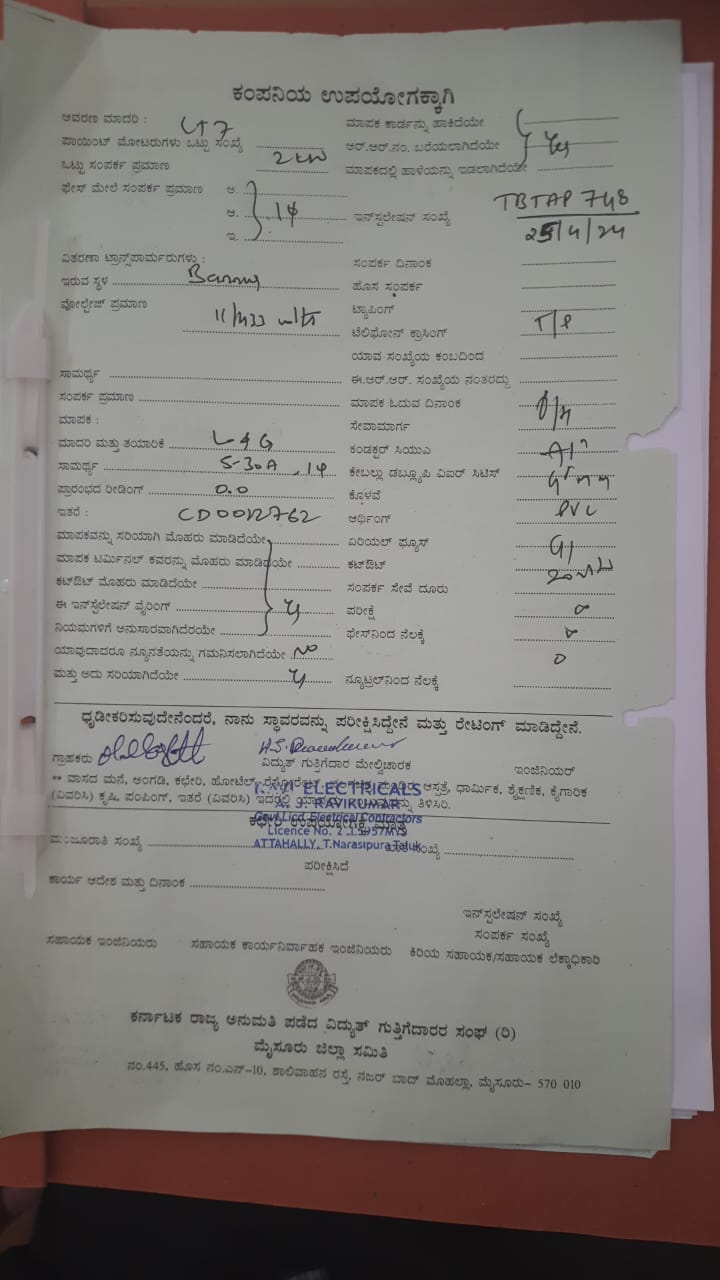 ಕಂಪನಿಯ ಉಪಯೋಗಕ್ಕಾಗಿ
ಆವರಣ ಮಾದರಿ : LT7
ಮಾಪಕ ಕಾರ್ಡನ್ನು ಹಾಕಿದೆಯೇ
ಪಾಯಿಂಟ್ ಮೋಟರುಗಳು ಒಟ್ಟು ಸಂಖ್ಯೆ
ಆರ್.ಆರ್.ನಂ. ಬರೆಯಲಾಗಿದೆಯೇ
ಒಟ್ಟು ಸಂಪರ್ಕ ಪ್ರಮಾಣ 2 KW
ಮಾಪಕದಲ್ಲಿ ಹಾಳೆಯನ್ನು ಇಡಲಾಗಿದೆಯೇ
ಫೇಸ್ ಮೇಲೆ ಸಂಪರ್ಕ ಪ್ರಮಾಣ ಅ.
ಆ. 1φ
ಇ.
ಇನ್‌ಸ್ಟಲೇಷನ್ ಸಂಖ್ಯೆ TBTAP 748
25/4/24
ವಿತರಣಾ ಟ್ರಾನ್ಸ್‌ಪಾರ್ಮರುಗಳು :
ಸಂಪರ್ಕ ದಿನಾಂಕ
ಇರುವ ಸ್ಥಳ
ಹೊಸ ಸಂಪರ್ಕ
ವೋಲ್ಟೇಜ್ ಪ್ರಮಾಣ
ಟ್ಯಾಪಿಂಗ್
ಟೆಲಿಫೋನ್ ಕ್ರಾಸಿಂಗ್
ಯಾವ ಸಂಖ್ಯೆಯ ಕಂಬದಿಂದ
ಸಾಮರ್ಥ್ಯ
ಈ.ಆರ್.ಆರ್. ಸಂಖ್ಯೆಯ ನಂತರದ್ದು
ಸಂಪರ್ಕ ಪ್ರಮಾಣ
ಮಾಪಕ ಓದುವ ದಿನಾಂಕ
ಮಾಪಕ :
ಸೇವಾಮಾರ್ಗ O/H
ಮಾದರಿ ಮತ್ತು ತಯಾರಿಕೆ L & G
ಕಂಡಕ್ಟರ್ ಸಿಯುಎ
ಸಾಮರ್ಥ್ಯ 5-30A, 1φ
ಕೇಬಲ್ಲು ಡಬ್ಲ್ಯೂಪಿ ವಿಐರ್ ಸಿಟಿಸ್
ಪ್ರಾರಂಭದ ರೀಡಿಂಗ್ 0.0
ಕೊಳವೆ PVC
ಇತರೆ : CD0012762
ಆರ್ಥಿಂಗ್
ಮಾಪಕವನ್ನು ಸರಿಯಾಗಿ ಮೊಹರು ಮಾಡಿದೆಯೇ
ಏರಿಯಲ್ ಫ್ಯೂಸ್ GI
ಮಾಪಕ ಟರ್ಮಿನಲ್ ಕವರನ್ನು ಮೊಹರು ಮಾಡಿದೆಯೇ
ಕಟ್‌ಔಟ್
ಕಟ್‌ಔಟ್ ಮೊಹರು ಮಾಡಿದೆಯೇ
ಸಂಪರ್ಕ ಸೇವೆ ದೂರು
ಈ ಇನ್‌ಸ್ಟಲೇಷನ್ ವೈರಿಂಗ್
ಪರೀಕ್ಷೆ
ನಿಯಮಗಳಿಗೆ ಅನುಸಾರವಾಗಿದೆರಯೇ
ಫೇಸ್‌ನಿಂದ ನೆಲಕ್ಕೆ
ಯಾವುದಾದರೂ ನ್ಯೂನತೆಯನ್ನು ಗಮನಿಸಲಾಗಿದೆಯೇ No
ಮತ್ತು ಅದು ಸರಿಯಾಗಿದೆಯೇ
ನ್ಯೂಟ್ರಲ್‌ನಿಂದ ನೆಲಕ್ಕೆ
ಧೃಡೀಕರಿಸುವುದೇನೆಂದರೆ, ನಾನು ಸ್ಥಾವರವನ್ನು ಪರೀಕ್ಷಿಸಿದ್ದೇನೆ ಮತ್ತು ರೇಟಿಂಗ್ ಮಾಡಿದ್ದೇನೆ.
ಗ್ರಾಹಕರು
ವಿದ್ಯುತ್ ಗುತ್ತಿಗೆದಾರ ಮೇಲ್ವಿಚಾರಕ
ಇಂಜಿನಿಯರ್
** ವಾಸದ ಮನೆ, ಅಂಗಡಿ, ಕಛೇರಿ, ಹೋಟೆಲ್ ಆಸ್ಪತ್ರೆ, ಧಾರ್ಮಿಕ, ಶೈಕ್ಷಣಿಕ, ಕೈಗಾರಿಕ
(ವಿವರಿಸಿ) ಕೃಷಿ, ಪಂಪಿಂಗ್, ಇತರೆ (ವಿವರಿಸಿ) ಇದರಲ್ಲಿ ತಿಳಿಸಿರಿ.
ELECTRICALS
RAVIKUMAR
Govt.Licd. Electrical Contractors
Licence No.
ATTAHALLY, T.Narasipura Taluk
ಕಛೇರಿ ಉಪಯೋಗಕ್ಕೆ ಮಾತ್ರ
ಮಂಜೂರಾತಿ ಸಂಖ್ಯೆ
ಸಂಖ್ಯೆ
ಪರೀಕ್ಷಿಸಿದೆ
ಕಾರ್ಯ ಆದೇಶ ಮತ್ತು ದಿನಾಂಕ
ಇನ್‌ಸ್ಟಲೇಷನ್ ಸಂಖ್ಯೆ
ಸಂಪರ್ಕ ಸಂಖ್ಯೆ
ಸಹಾಯಕ ಇಂಜಿನಿಯರು ಸಹಾಯಕ ಕಾರ್ಯನಿರ್ವಾಹಕ ಇಂಜಿನಿಯರು ಕಿರಿಯ ಸಹಾಯಕ/ಸಹಾಯಕ ಲೆಕ್ಕಾಧಿಕಾರಿ
ಕರ್ನಾಟಕ ರಾಜ್ಯ ಅನುಮತಿ ಪಡೆದ ವಿದ್ಯುತ್ ಗುತ್ತಿಗೆದಾರರ ಸಂಘ (ರಿ)
ಮೈಸೂರು ಜಿಲ್ಲಾ ಸಮಿತಿ
ನಂ.445, ಹೊಸ ನಂ.ಎನ್-10, ಶಾಲಿವಾಹನ ರಸ್ತೆ, ನಜರ್ ಬಾದ್ ಮೊಹಲ್ಲಾ, ಮೈಸೂರು- 570 010